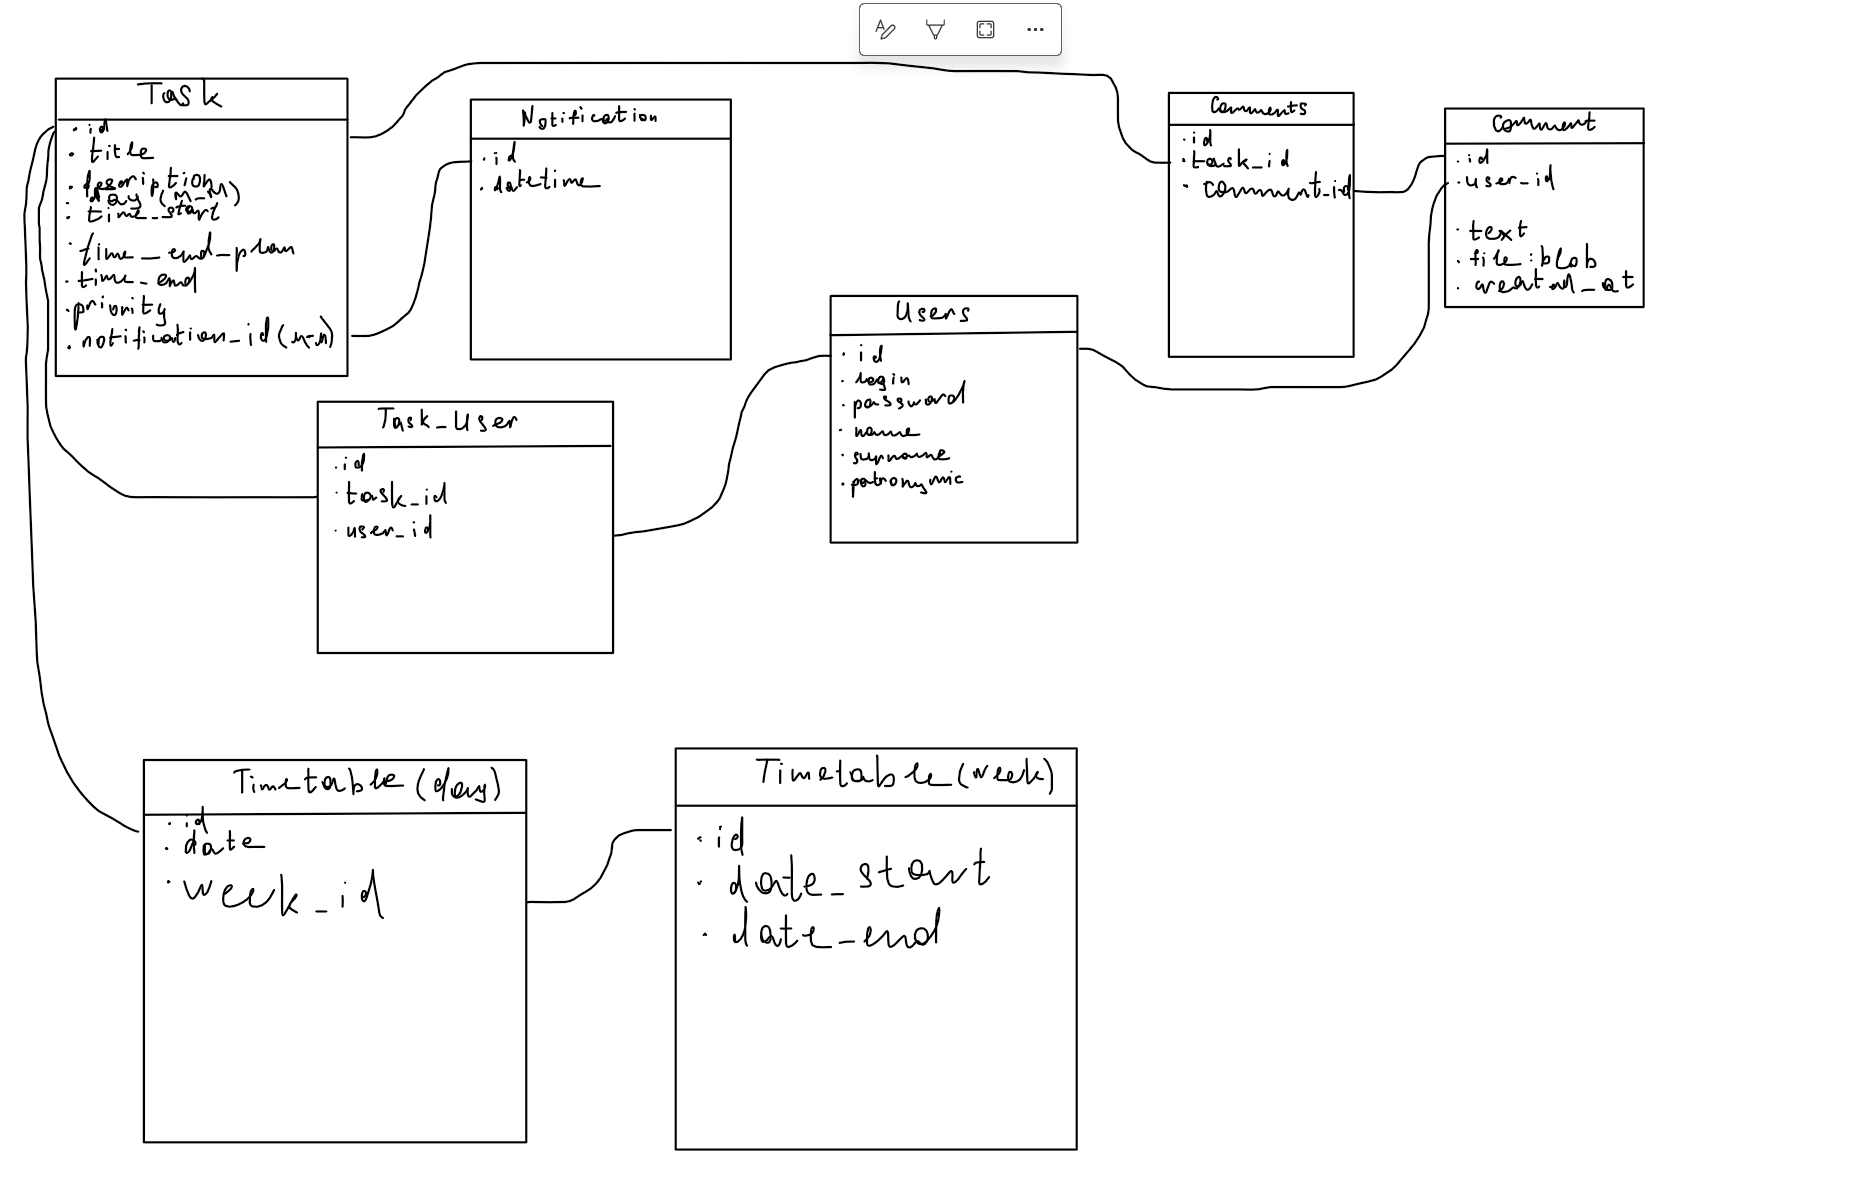 Task
id
title
description
day (M-M)
time_start
time_end_plan
time_end
priority
notification_id (n-n)
Notification
id
datetime
Comments
id
task_id
comment_id
Comment
id
user_id
text
file:blob
created_at
Users
id
login
password
name
surname
patronymic
Task_User
id
task_id
user_id
Timetable (day)
id
date
week_id
Timetable (week)
id
date_start
date_end